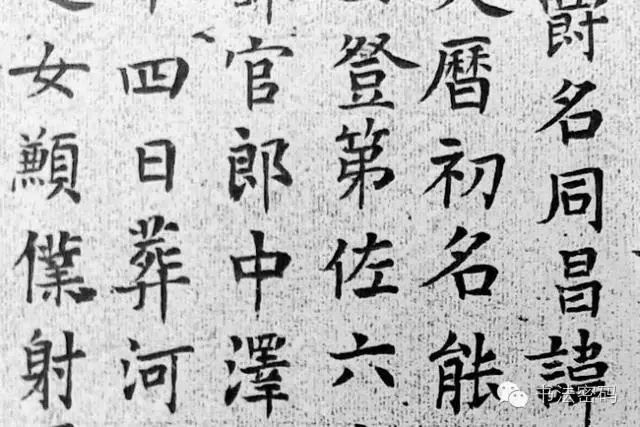 爵名同昌諱
曆初名能
登第佐六
官郎中澤
四日葬河
女顓僕射
书法密码